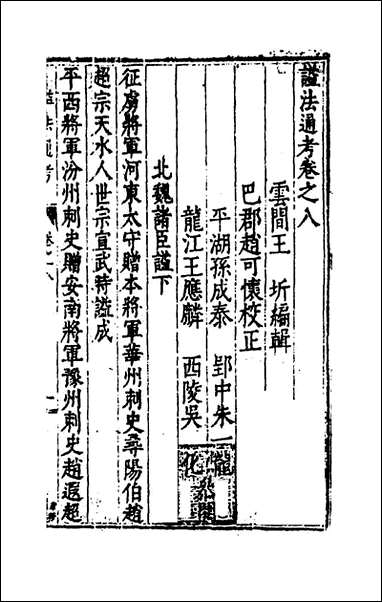 諡法通考卷之八
雲間王　圻編輯
巴郡趙可懷校正
平湖孫成泰　郢中朱一
龍江王應麟　西陵吳化
北魏諸臣諡下
征虜將軍河東太守贈本將軍華州刺史尋陽伯趙
超宗天水人世宗宣武時諡成
平西將軍汾州刺史贈安南將軍豫州刺史趙遐超
諡法通考
卷之八
一